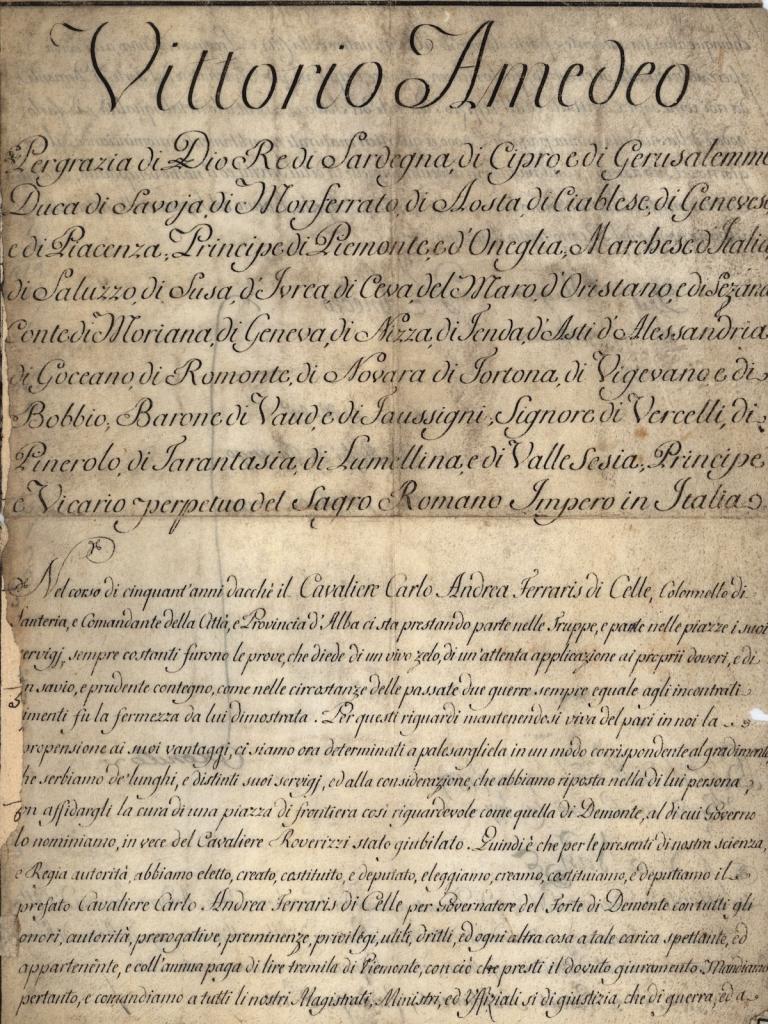 Vittorio Amedeo
Per grazia di Dio Re di Sardegna, di Cipro, e di Gerusalemme
Duca di Savoja, di Monferrato, di Aosta, di Ciablese, di Genevese
e di Piacenza, Principe di Piemonte, e d'Oneglia, Marchese d'Italia,
di Saluzzo, di Susa, d'Ivrea, di Ceva, del Maro, d'Oristano, e di Sezana
Conte di Moriana, di Geneva, di Nizza, di Tenda, d'Asti d'Alessandria
di Goceano, di Romonte, di Novara di Tortona, di Vigevano e di
Bobbio, Barone di Vaud, e di Faussigni, Signore di Vercelli, di
Pinerolo, di Tarantasia, di Lumellina, e di Valle Sesia, Principe
e Vicario perpetuo del Sagro Romano Impero in Italia
Nel corso di cinquant'anni dacchè il Cavaliere Carlo Andrea Ferraris di Celle, Colonnello di
fanteria, e Comandante della Città, e Provincia d'Alba ci sta prestando parte nelle Truppe, e parte nelle piazze i suoi
servigj, sempre costanti furono le prove, che diede di un vivo zelo, di un'attenta applicazione ai proprii doveri, e di
un savio, e prudente contegno, come nelle circostanze delle passate due guerre sempre eguale agli incontrati
cimenti fù la fermezza da lui dimostrata. Per questi riguardi mantenendosi viva del pari in noi la
propensione ai suoi vantaggi, ci siamo ora determinati a palesargliela in un modo corrispondente al gradimento,
che serbiamo de' lunghi, e distinti suoi servigj, ed alla considerazione, che abbiamo riposta nella di lui persona
con affidargli la cura di una piazza di frontiera così riguardevole come quella di Demonte, al di cui Governo
lo nominiamo, in vece del Cavaliere Roverizzi stato giubilato. Quindi è che per le presenti di nostra scienza,
e Regia autorità, abbiamo eletto, creato, costituito, e deputato, eleggiamo, creamo, costituiamo, e deputiamo il
prefato Cavaliere Carlo Andrea Ferraris di Celle per Governatore del Forte di Demonte con tutti gli
onori, autorità, prerogative, preminenze, privilegi, utili, dritti, ed ogni altra cosa a tale carica spettante, ed
appartenente, e coll'annua paga di lire tremila di Piemonte, con ciò che presti il dovuto giuramento. Mandiamo
pertanto, e comandiamo a tutti li nostri Magistrati, Ministri, ed Uffiziali sì di giustizia, che di guerra, ed a